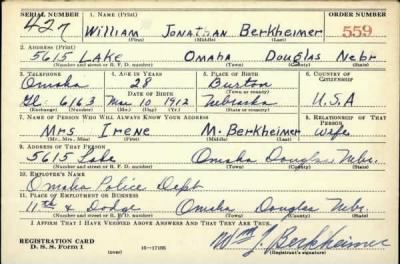 SERIAL NUMBER 1. NAME (Print) ORDER NUMBER
427 William Jonathan Berkheimer 559
(First) (Middle) (Last)
2. ADDRESS (Print)
5615 Lake Omaha Douglas Nebr
(Number and street or R. F. D. number) (Town) (County) (State)
3. TELEPHONE 4. AGE IN YEARS 5. PLACE OF BIRTH 6. COUNTRY OF CITIZENSHIP
Omaha 28 Burton
DATE OF BIRTH (Town or county)
Gl 6163 Mar 10 1912 Nebraska U.S.A
(Exchange) (Number) (Mo.) (Day) (Yr.) (State or country)
7. NAME OF PERSON WHO WILL ALWAYS KNOW YOUR ADDRESS 8. RELATIONSHIP OF THAT PERSON
Mrs Irene M. Berkheimer wife
(Mr., Mrs., Miss) (First) (Middle) (Last)
9. ADDRESS OF THAT PERSON
5615 Lake Omaha Douglas Nebr.
(Number and street or R. F. D. number) (Town) (County) (State)
10. EMPLOYER'S NAME
Omaha Police Dept
11. PLACE OF EMPLOYMENT OR BUSINESS
11th & Dodge Omaha Douglas Nebr.
(Number and street or R. F. D. number) (Town) (County) (State)
I AFFIRM THAT I HAVE VERIFIED ABOVE ANSWERS AND THAT THEY ARE TRUE.
Wm J. Berkheimer
REGISTRATION CARD
D. S. S. Form 1 (over) 16—17105 (Registrant's signature)